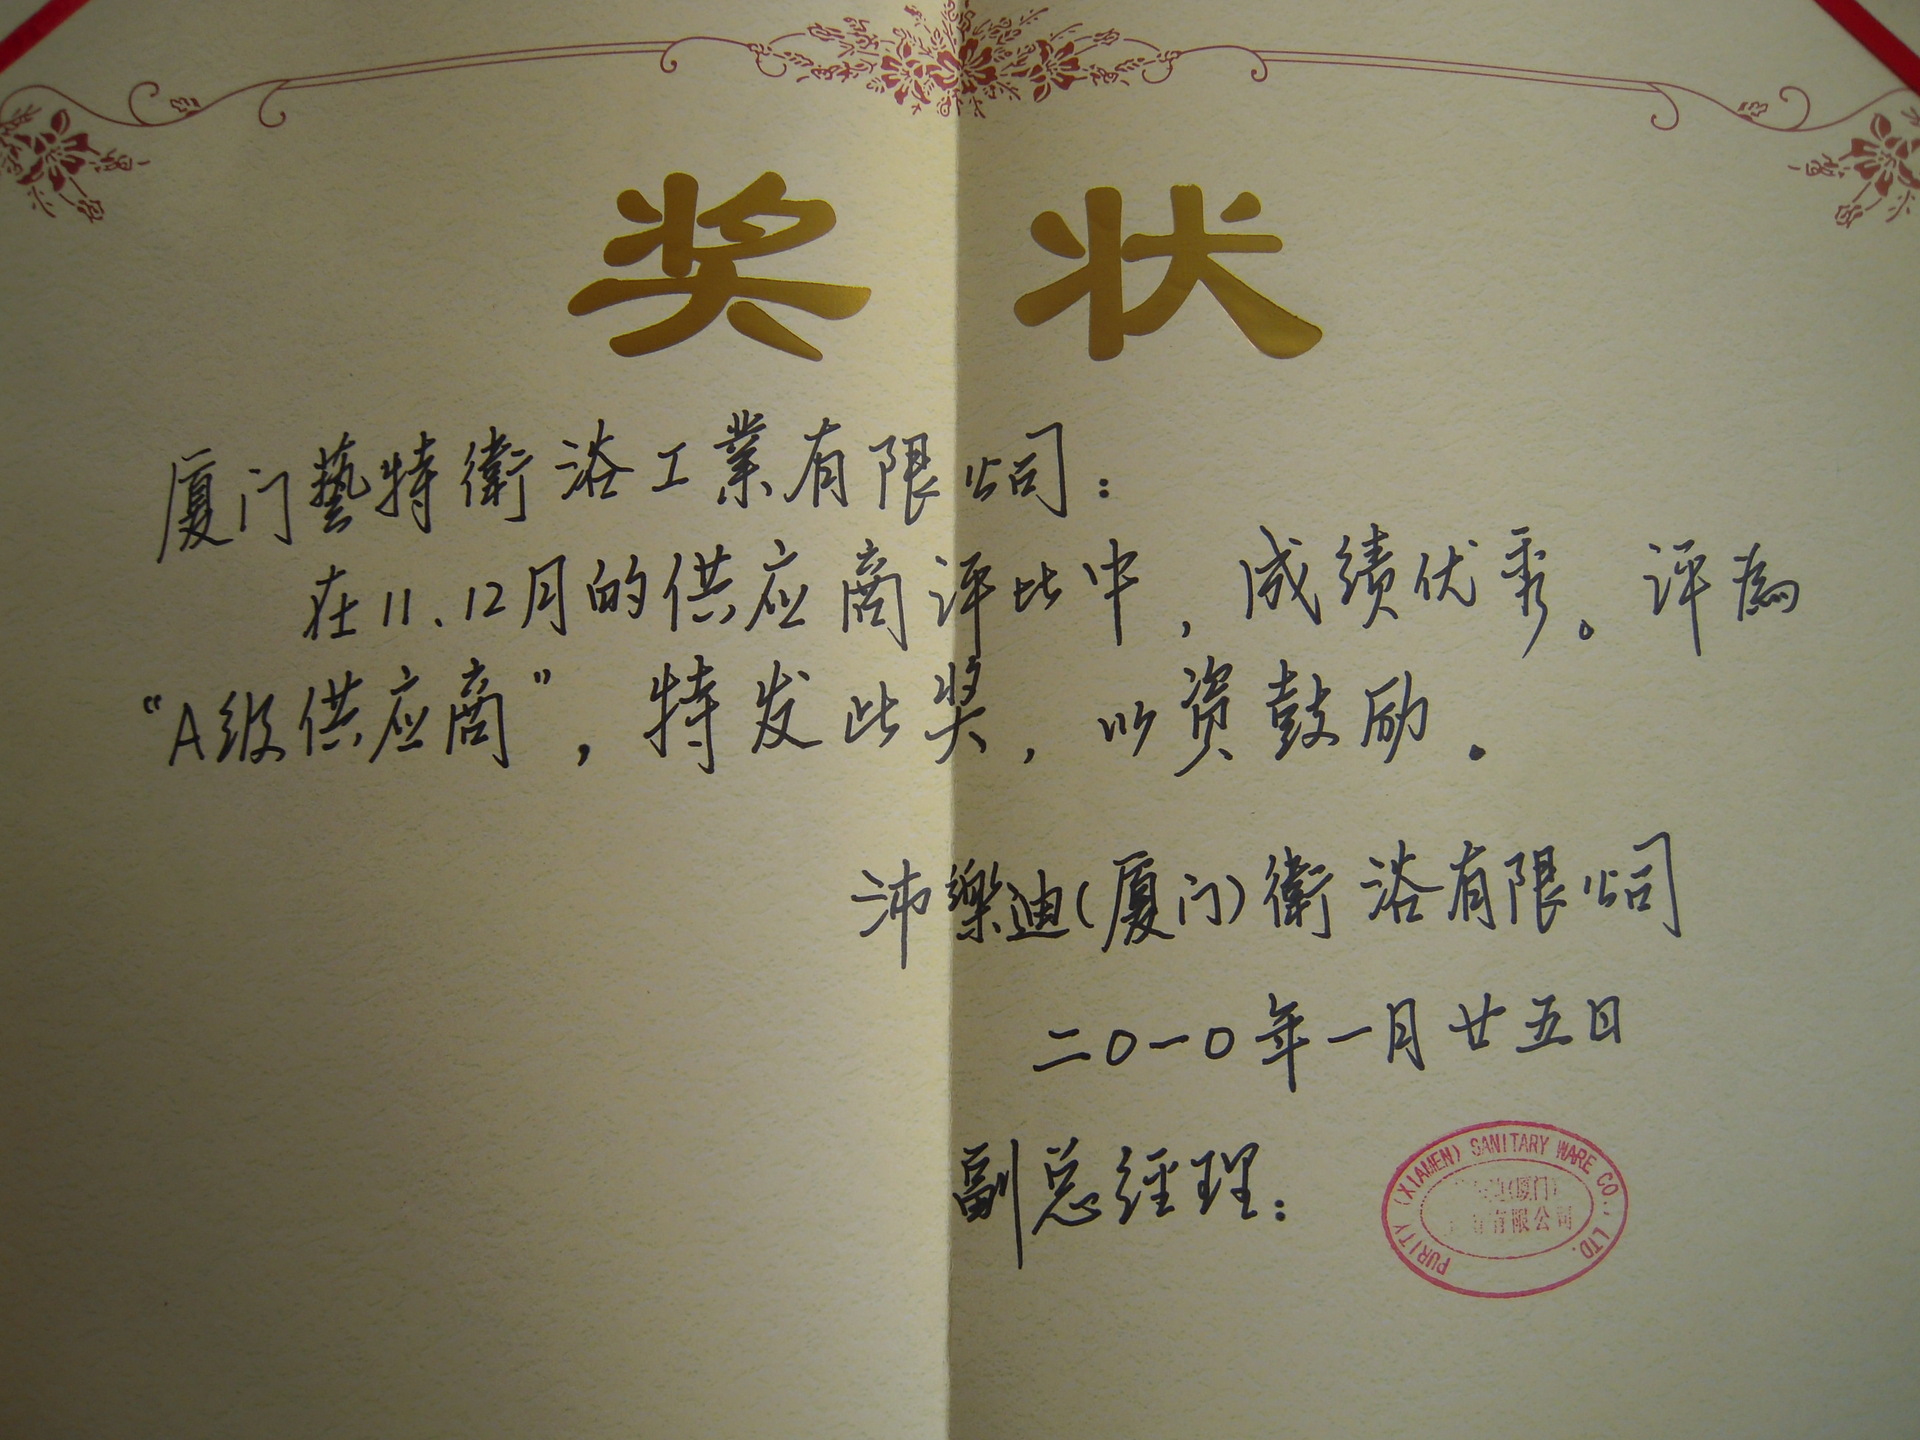 奖状
厦门藝特衛浴工業有限公司：
在11.12月的供应商评比中，成绩优秀。评為
“A级供应商”，特发此奖，以资鼓励。
沛樂迪(厦门)衛浴有限公司
二〇一〇年一月廿五日
副总经理：
PURITY (XIAMEN) SANITARY WARE CO., LTD.
(厦门)
有限公司